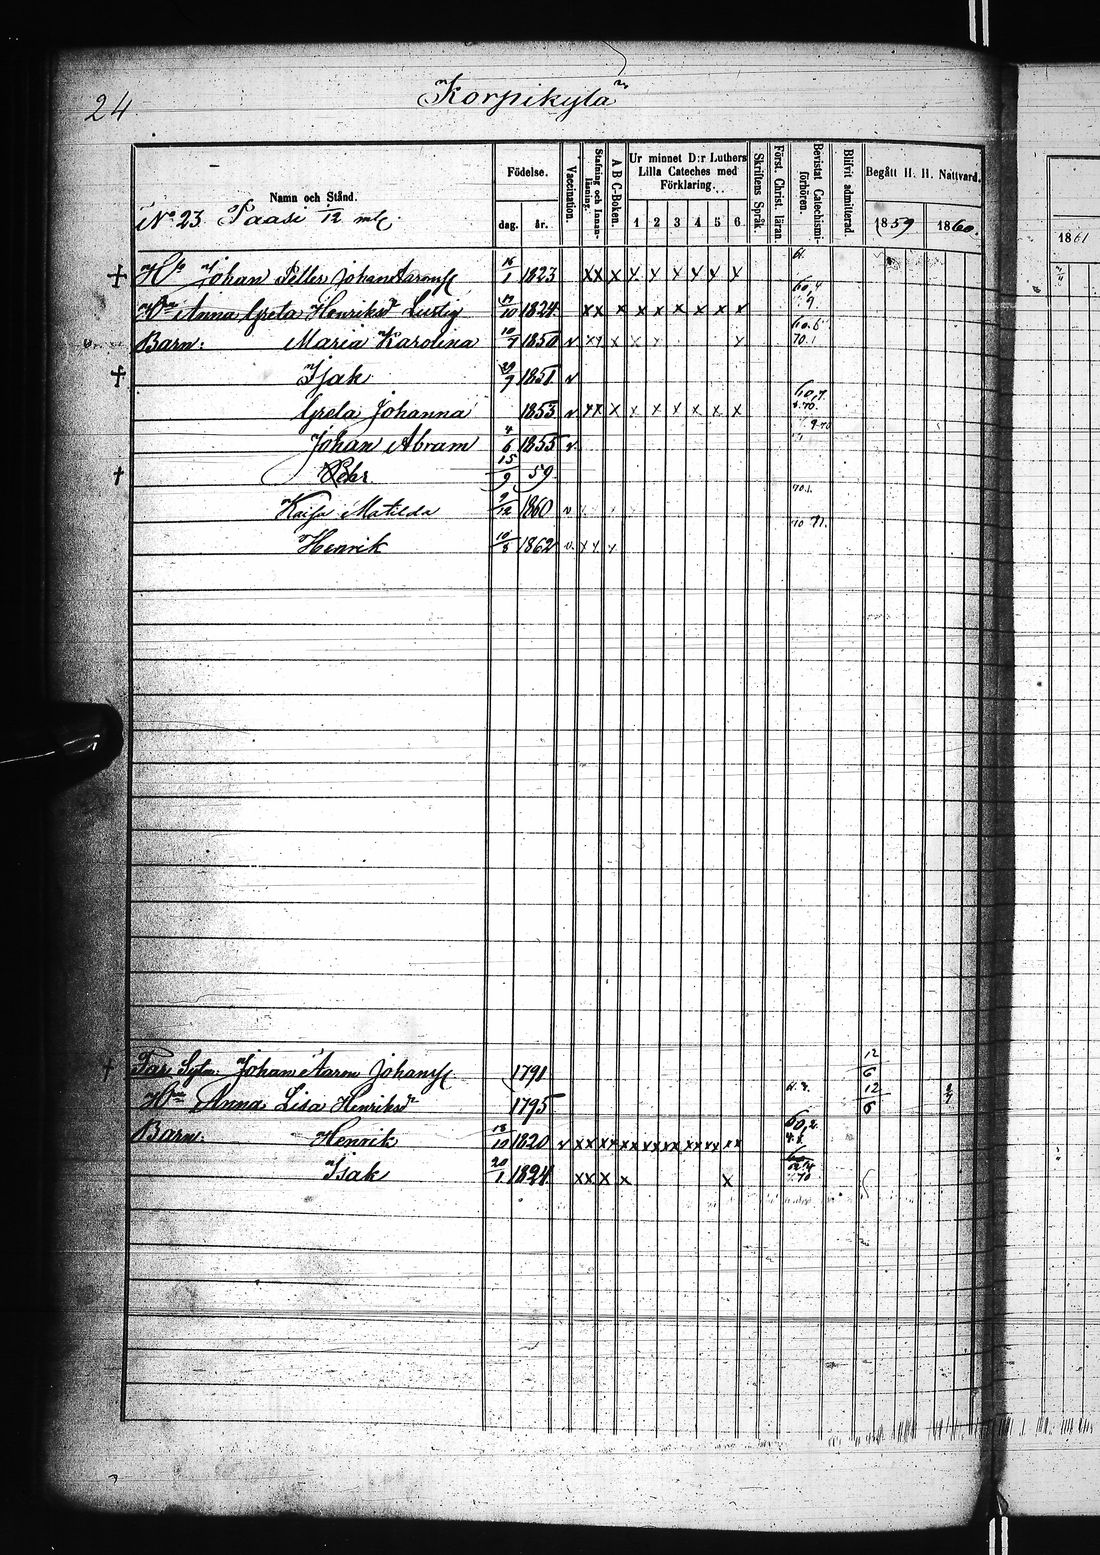 24
Korpikylä
Namn och Stånd.
Födelse.
dag. år.
Vaccination.
Stafning och Innanläsning.
A B C-Boken.
Ur minnet D:r Luthers Lilla Cateches med Förklaring.
1 2 3 4 5 6
Skriftens Språk.
Först. Christ. läran.
Bevistat Catechismiförhören.
Blifvit admitterad.
Begått H. H. Nattvard.
1859 1860.
1861
No 23 Paasi 1/12 mtl.
Johan Petter Johan Aaronss 1823 x x x x x x x x x
Anna Greta Henriksdr Lustig 10 1824 x x x x x x x x x
Barn: Maria Karolina 10/7 1850 v x x x x x x
Isak 20/9 1851 v
Greta Johanna 1853 v x x x x x x x x x
Johan Abram 4/6 1855 v
Pehr 15/9 59
Kaisa Matilda 9/12 1860 v
Henrik 10/3 1862 v. x x x
Far Johan Aaron Johanss 1791 12/6
Anna Lisa Henriksdr 1795 12/6
Barn: Henrik 18/10 1820 v x x x x x x x x x x x x x x x x
Isak 20/1 1824 x x x x x